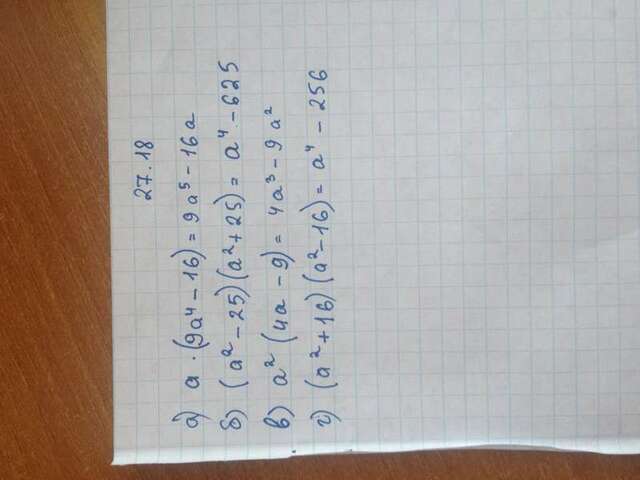 27.18
а) a · (9a⁴ - 16) = 9a⁵ - 16a
б) (a² - 25)(a² + 25) = a⁴ - 625
в) a² (4a - 9) = 4a³ - 9a²
г) (a² + 16)(a² - 16) = a⁴ - 256